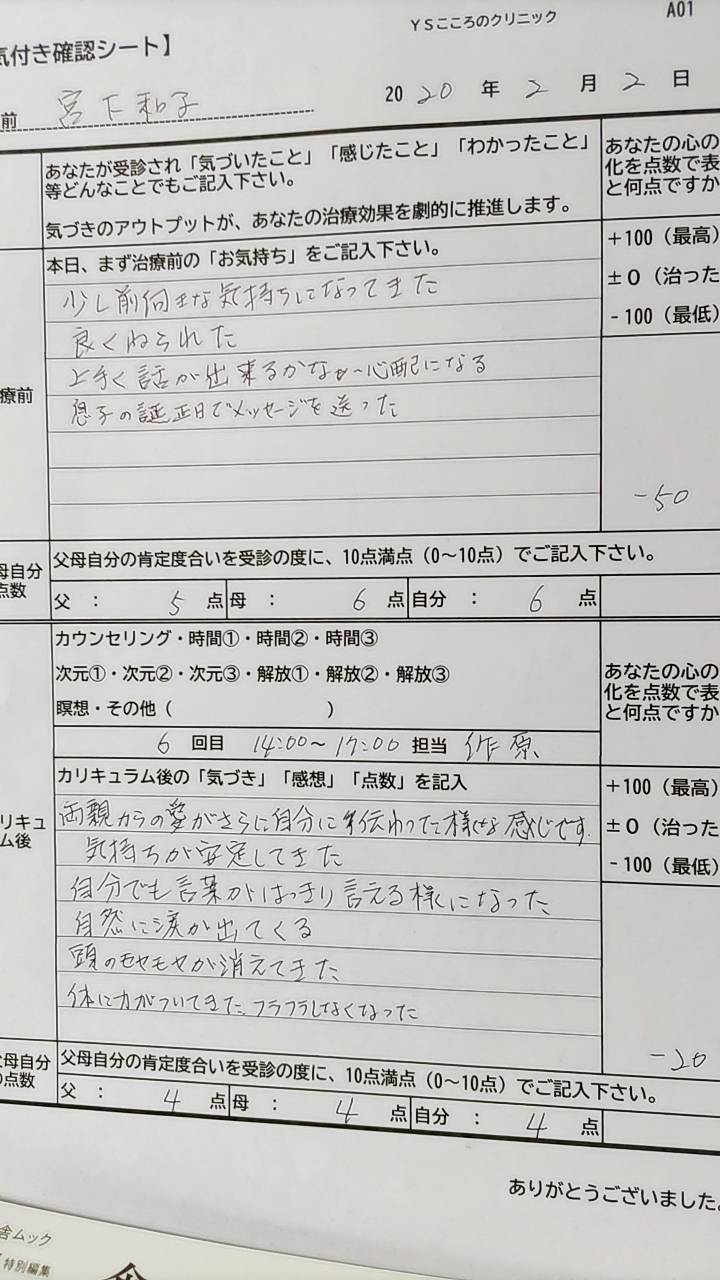 YSこころのクリニック
A01
気付き確認シート】
前 宮下和子
2020年2月2日
あなたが受診され「気づいたこと」「感じたこと」「わかったこと」
等どんなことでもご記入下さい。
気づきのアウトプットが、あなたの治療効果を劇的に推進します。
あなたの心の
化を点数で表
と何点ですか
療前
本日、まず治療前の「お気持ち」をご記入下さい。
少し前向きな気持ちになってきた
良くねられた
上手く話が出来るかなぁ〜心配になる
息子の誕正日でメッセージを送った
+100(最高)
±0(治った
-100(最低)
-50
母自分
点数
父母自分の肯定度合いを受診の度に、10点満点(0〜10点)でご記入下さい。
父 : 5 点 母 : 6 点 自分 : 6 点
カウンセリング・時間①・時間②・時間③
次元①・次元②・次元③・解放①・解放②・解放③
瞑想・その他( )
6 回目 14:00〜17:00 担当 作原
あなたの心の
化を点数で表
と何点ですか
リキュ
ム後
カリキュラム後の「気づき」「感想」「点数」を記入
両親からの愛がさらに自分に伝わった様な感じです.
気持ちが安定してきた
自分でも言葉がはっきり言える様になった
自然に涙が出てくる
頭のモヤモヤが消えてきた
体に力がついてきた、フラフラしなくなった
+100(最高)
±0(治った
-100(最低)
-20
父母自分
の点数
父母自分の肯定度合いを受診の度に、10点満点(0〜10点)でご記入下さい。
父 : 4 点 母 : 4 点 自分 : 4 点
ありがとうございました。
舎ムック
特別編集